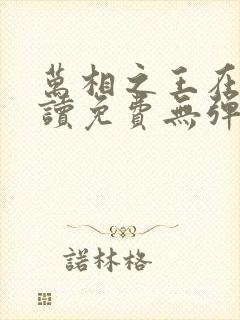 萬相之王在
讀免費無彈
諾林格